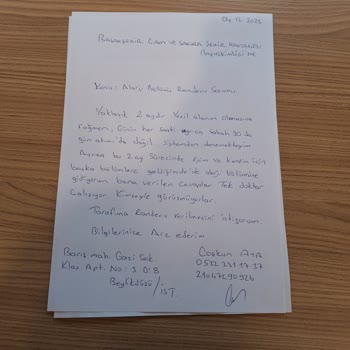 04.12.2025
Başakşehir Çam ve Sakura Şehir Hastanesi
Başhekimliği'ne
Konu: Alerji Bölümü Randevu Sorunu.
Yaklaşık 2 aydır Yeşil alanım olmasına
rağmen, Günün her saati ayrıca sabah 10 da
gün atımı da dahil sistemden denemekteyim
Ayrıca bu 2 ay sürecinde eşim ve kendim için
başka bölümlere geldiğimde de alerji bölümüne
gidiyorum bana verilen cevaplar Tek doktor
Çalışıyor Kimseyle görüşmüyorlar.
Tarafıma Randevu verilmesini istiyorum.
Bilgilerinize Arz ederim
Barış mah. Gazi Sok.
Klas Apt. No: 3 D: 8
Beylikdüzü / İST
Coşkun ATA
0532 231 17 37
21067290926